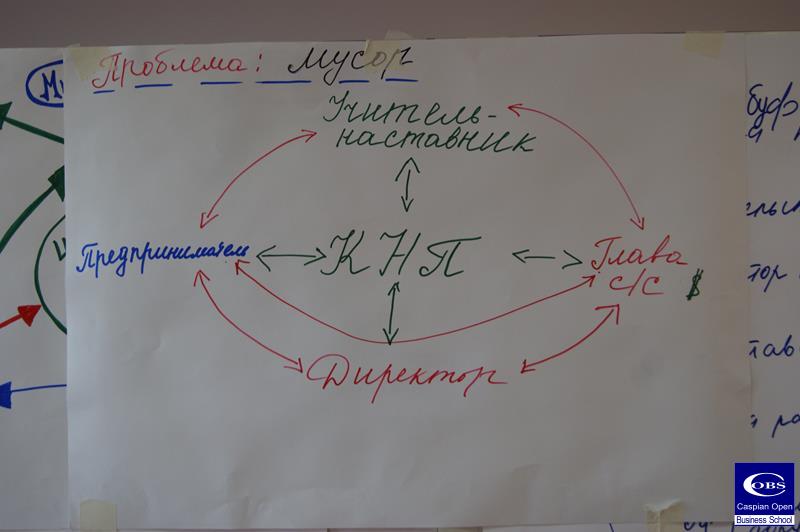 Проблема: Мусор
Учитель-
наставник
Предприниматель
КНП
Глава
с/с $
Директор
буф
тор
тав
COBS
Caspian Open
Business School